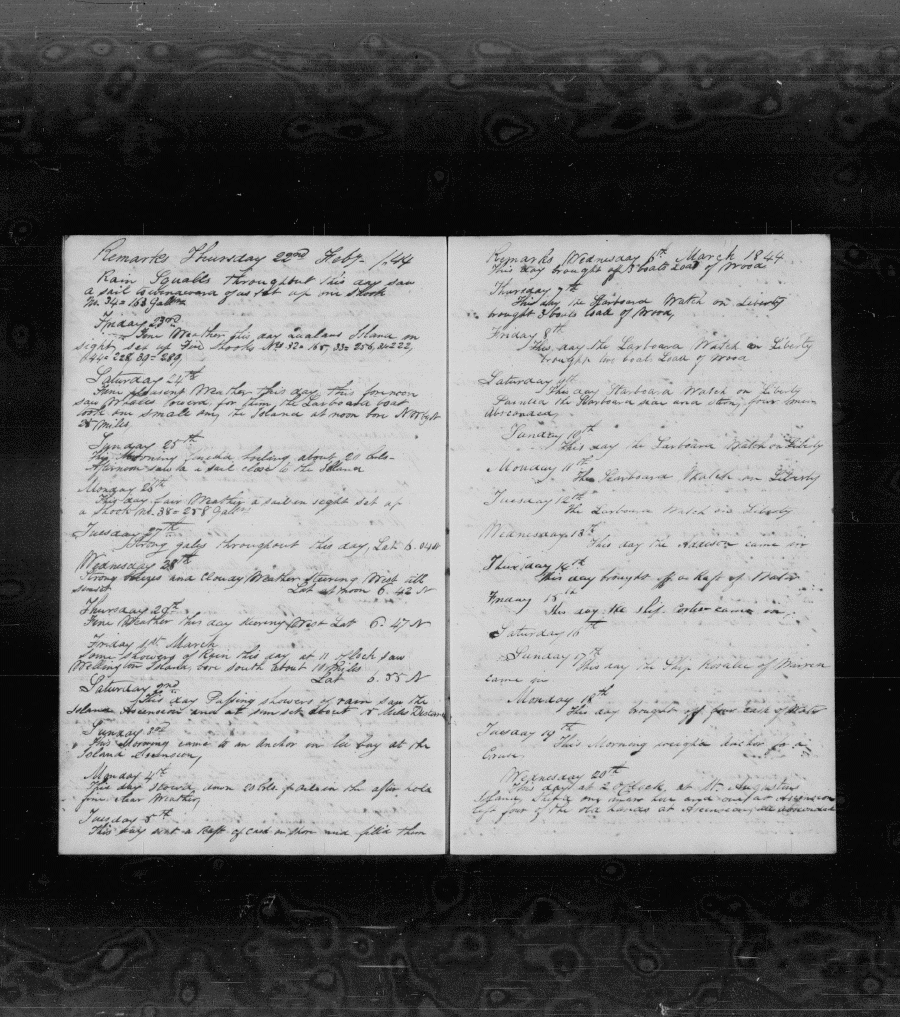 Remarks Thursday 22nd Feby /44
Rain Squalls throughout this day saw
a sail to windward of us set up one Shook
No. 34 = 163 Gallns
Friday 23rd
Fine Weather this day Qualans Island in
sight, set up Five Shooks No 32 = 165, 33 = 256,
Saturday 24th
Fine pleasent Weather this day this forenoon
saw Whales lowered for them, the Larboard boat
took one small one, the Island at noon bore
25 miles
Sunday 25th
This Morning finished boiling about 20 bbls
Afternoon saw a sail close to the Island
Monday 26th
This day fair Weather a sail in sight set up
a Shook No. 38 = 258 Galls
Tuesday 27th
Strong gales throughout this day, Lat 6.
Wednesday 28th
Strong Breezes and Cloudy Weather Steering West till
sunset Lat at noon 6. 42 N
Thursday 29th
Fine Weather this day steering West Lat 6. 47 N
Friday 1st March
Some showers of Rain this day at 11 oClock saw
Wellington Island, bore south about 10 Miles
Lat 6. 55 N
Saturday 2nd
This day Passing showers of rain saw the
Island Ascension and at sun set about 5 Miles Distance
Sunday 3rd
This Morning came to an Anchor in lee bay at the
Island Ascension,
Monday 4th
This day stowed down 20 bbls in the after hold
fine clear Weather,
Tuesday 5th
This day sent a Raft of cask in shore and fill'd them
Remarks Wednesday 6th March 1844
This day brought off boats Load of Wood
Thursday 7th
This day the Starboard Watch on Liberty
brought 3 boats load of Wood,
Friday 8th
This day the Larboard Watch on Liberty
brought one boat Load of Wood
Saturday 9th
This day Starboard Watch on Liberty
Painted the Starboard side and four men
Absconded,
Sunday 10th
This day the Larboard Watch on Liberty
Monday 11th
The Starboard Watch on Liberty
Tuesday 12th
The Larboard Watch on Liberty
Wednesday 13th
This day the Addison came in
Thursday 14th
This day brought off a Raft of Water
Friday 15th
This day the ship came in
Saturday 16th
Sunday 17th
This day the Ship Rosalie of Warren
came in
Monday 18th
This day brought off four cask of Water
Tuesday 19th
This Morning weigh'd Anchor for a
Cruise,
Wednesday 20th
This day at 2 oClock, at St. Augustus
Island, Ship'd one man here and one at Ascension
left four of the old hands at Ascension, all absconded